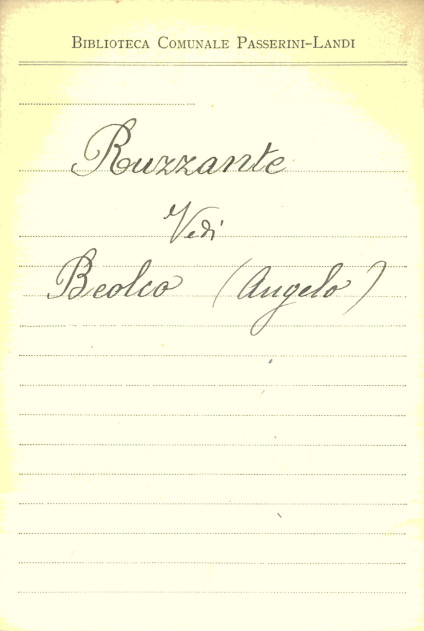 Biblioteca Comunale Passerini-Landi
Ruzzante
Vedi
Beolco (Angelo)